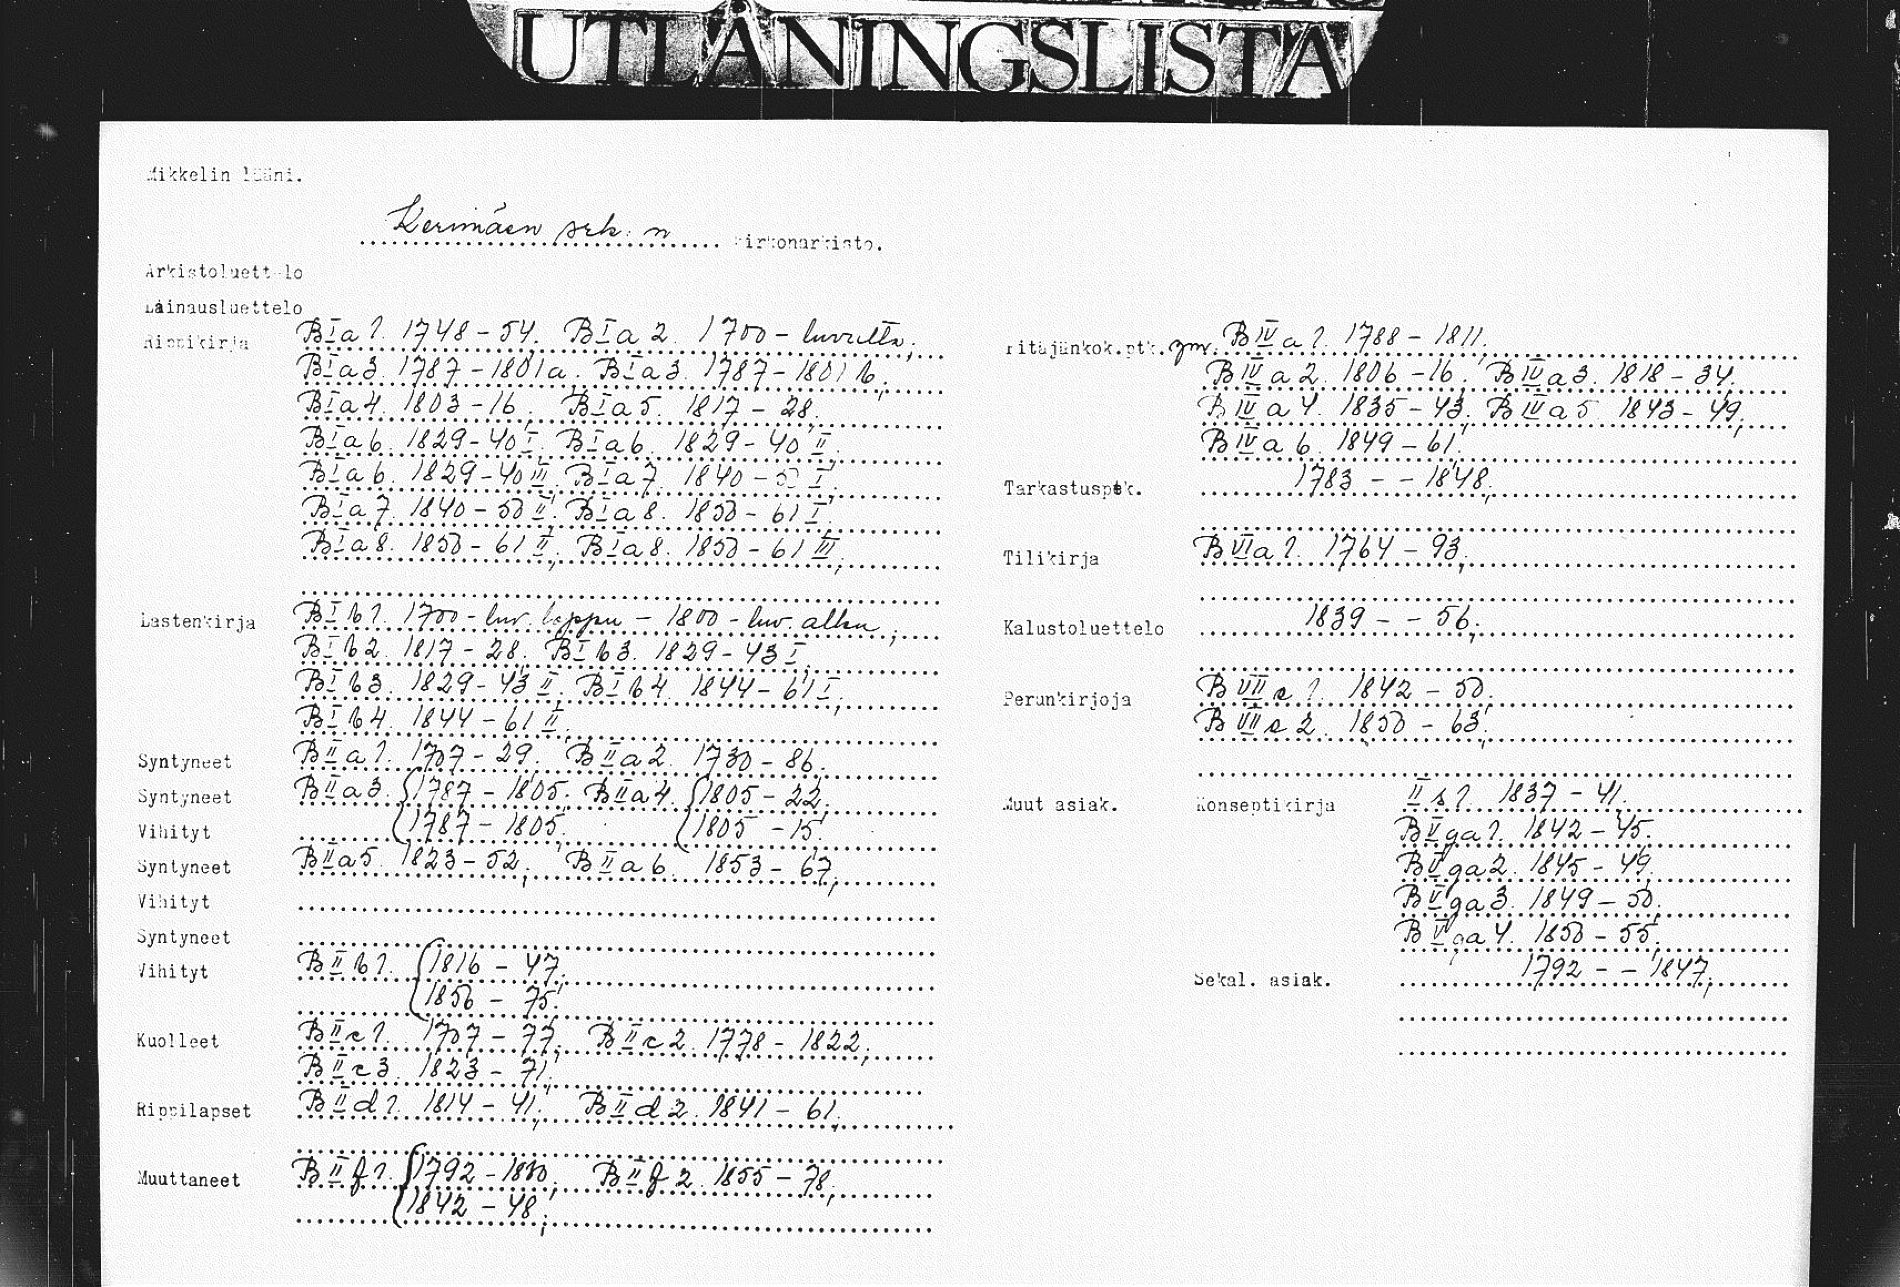 UTLÅNINGSLISTA
Mikkelin lääni.
Kerimäen srk:n kirkonarkisto.
Arkistoluettelo
Lainausluettelo
Rippikirja BIa1. 1748-54. BIa2. 1700-luvulta;
BIa3. 1787-1801a. BIa3. 1787-1801b;
BIa4. 1803-16; BIa5. 1817-28;
BIa6. 1829-40 I; BIa6. 1829-40 II;
BIa6. 1829-40 III; BIa7. 1840-50 I;
BIa7. 1840-50 II; BIa8. 1850-61 I;
BIa8. 1850-61 II; BIa8. 1850-61 III;
Lastenkirja BIb1. 1700-luv. loppu - 1800-luv. alku;
BIb2. 1817-28; BIb3. 1829-43 I;
BIb3. 1829-43 II; BIb4. 1844-61 I;
BIb4. 1844-61 II;
Syntyneet BIIa1. 1707-29; BIIa2. 1730-86.
Syntyneet BIIa3. {1787-1805; BIIa4. {1805-22;
Vihityt {1787-1805; {1805-15;
Syntyneet BIIa5. 1823-52; BIIa6. 1853-67;
Vihityt
Syntyneet
Vihityt BIIb1. {1816-47;
{1856-75;
Kuolleet BIIc1. 1707-77; BIIc2. 1778-1822;
BIIc3. 1823-71;
Rippilapset BIId1. 1814-41; BIId2. 1841-61;
Muuttaneet BIIf1. {1792-1800; BIIf2. 1855-78;
{1842-48;
Pitäjänkok.ptk. ym. BIVa1. 1788-1811.
BIVa2. 1806-16; BIVa3. 1818-34;
BIVa4. 1835-43; BIVa5. 1843-49;
BIVa6. 1849-61;
Tarkastusptk. 1783--1848;
Tilikirja BVIa1. 1764-93;
Kalustoluettelo 1839--56;
Perunkirjoja BVIIs1. 1842-50;
BVIIs2. 1850-63;
Muut asiak. Konseptikirja IIs1. 1837-41.
BVga1. 1842-45.
BVga2. 1845-49;
BVga3. 1849-50;
BVga4. 1850-55;
Sekal. asiak. 1792--1847;